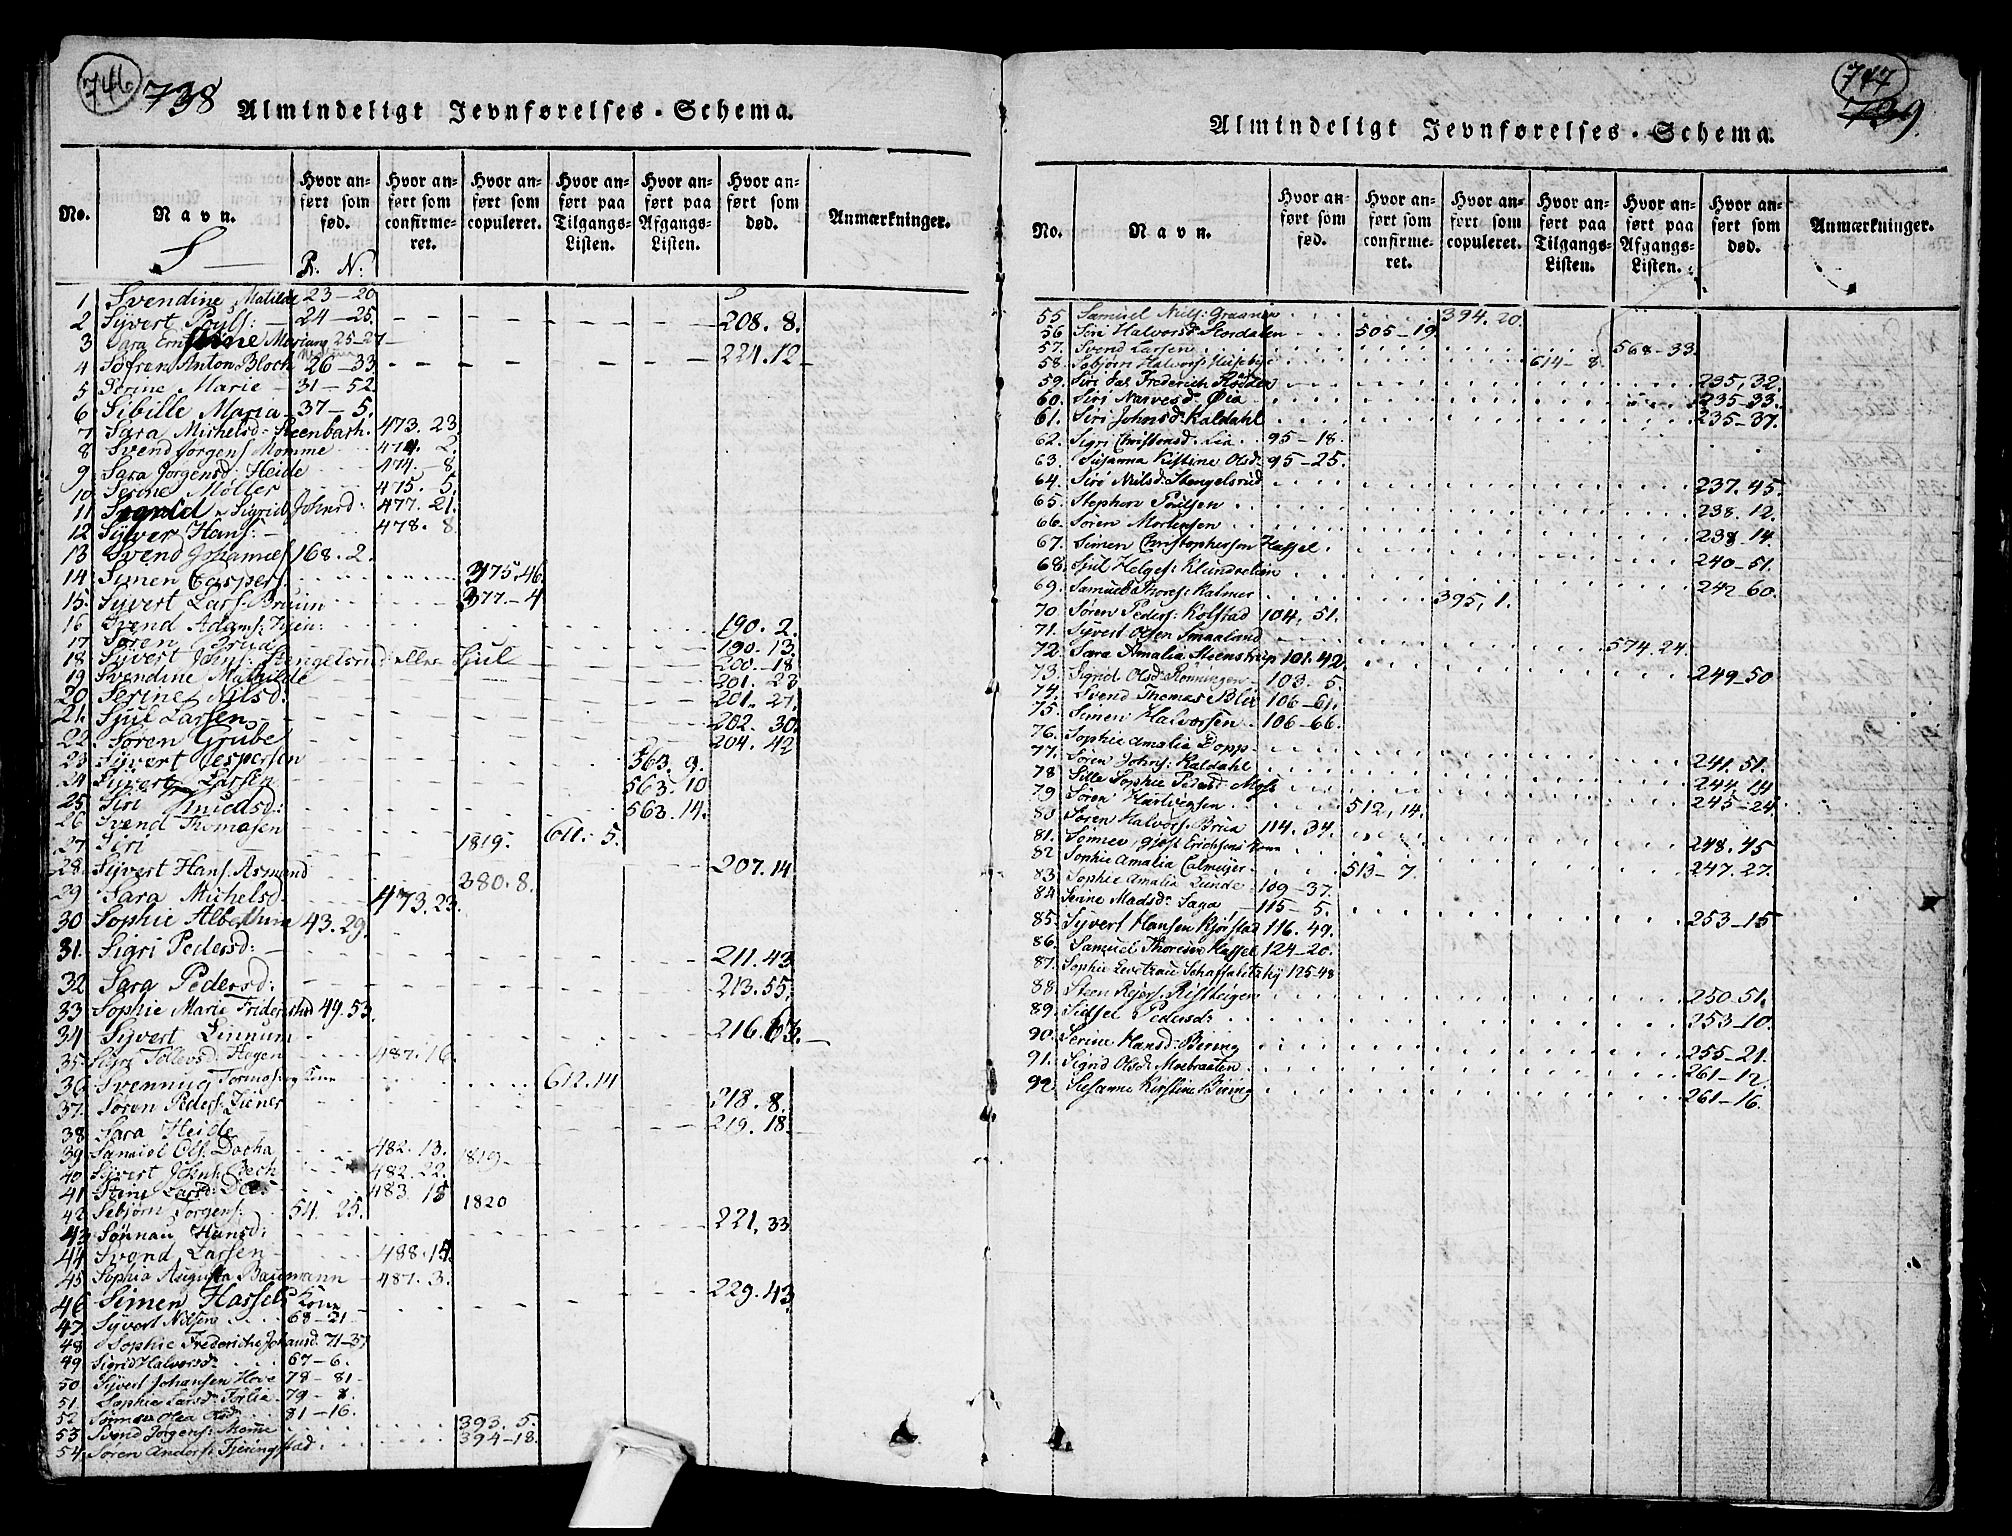 746 738 Almindeligt Jevnførelses-Schema.
No. Navn. Hvor anført som fød. Hvor anført som confirmeret. Hvor anført som copuleret. Hvor anført paa Tilgangs-Listen. Hvor anført paa Afgangs-Listen. Hvor anført som død. Anmærkninger.
S P. N:
1 Svendine Matilde 23-20
2 Syvert Pouls: 24-25. 208. 8.
3 Sara Mariane 25-27
4 Søfren Anton Bloch 26-33 224.12
5 Sørine Marie 31-52
6 Sibille Maria 37-5.
7 Sara Michelsd: Steenbach. 473. 23
8 Svend Jørgens Momme 474. 2.
9 Sara Jorgensd: Heide 474. 8
10 Serine Møller 475. 5
11 Sigrid Johnsd: 477. 21.
12 Sylver Hans: 478. 8
13 Svend Johannes 168. 2.
14 Simen Caspers: 375.46
15. Syvert Lars: Bruun 377-4
16 Svend Adams: 190. 2.
17 Søren Brua 190. 13.
18 Syvert Johns: Stengelsrud eller Sjul 200-18
19 Svendine Mathilde 201. 23
20 Serine Nilsd: 201. 27.
21. Sjul Larsen 202. 30.
22. Søren Grube 204. 42
23 Syvert Jespersen 563. 9.
24 Syvert Larsen 563. 10
25. Siri Knudsd: 563. 14.
26 Svend Thomasen
27 Siri 1819. 611. 5.
28. Syvert Hans: Asmand 207. 14
29 Sara Michelsd. 473.23. 380. 8.
30 Sophie Albertine 43. 29.
31. Sigri Pedersd: 211. 43
32 Sara Pedersd: 213. 55.
33 Sophie Marie Fridenstad 49. 53.
34 Syvert Linnum 216. 63.
35 Siri Tollevsd. Hegen 487. 16.
36 Svennug Kone 612. 14
37. Søren Peders: 218. 8.
38 Sara Heide 219. 18.
39 Samuel Ols: Docka 482. 13. 1819
40 Syvert Johns: Bech 482. 22.
41 Stine Larsd: Dees 483. 15 1820
42 Sebjørn Jorgens: 54. 25.
43 Sønnau Hansd: 221, 33
44 Svend Larsen 488. 15.
45 Sophia Augusta Baumann 487. 3.
46 Simen Hassels Kone 229. 43
47 Syvert Nilsen 68-21
48 Sophie Frederiche Johansd. 71-37
49 Sigrid Halvorsd: 67-6.
50 Syvert Johansen Hove 78-81
51. Sophie Larsd: 79-8.
52 Olea Olsd: 81-16.
53 Svend Jorgens: Mome 393. 5.
54 Søren Anders: Tjeringstad 394-18.
747 739
Almindeligt Jevnførelses-Schema.
No. Navn. Hvor anført som fød. Hvor anført som confirmeret. Hvor anført som copuleret. Hvor anført paa Tilgangs-Listen. Hvor anført paa Afgangs-Listen. Hvor anført som død. Anmærkninger.
55 Samuel Niels: Graanen 394. 20.
56 Siri Halvorsd. Stordalen 505-19
57. Svend Larsen 568-33.
58. Sebjørn Halvors: Huseby 614-8.
59. Siri Frederich 235, 32.
60. Siri Narvesd: Øia 235-33.
61. Siri Johnsd: Kaldahl 235-37.
62. Sigri Christensd. Lia 95-18.
63. Susanna Kistine Olsd: 95-25.
64. Siri Nilsd: Stengelsrud 237. 45.
65. Stephen Poulsen 238. 12.
66. Søren Mortensen 238-14.
67. Simen Christophersen Hassel. 240-51.
68. Sjul Helges: 242 60.
69. Samuel Thores: Kalmer 395, 1.
70. Søren Peders: Kolstad 104, 51.
71. Syvert Olsen Smaaland 574. 24.
72. Sara Amalia Steenstrup 101. 42.
73. Sigrid Olsd: Rønningen 103. 5. 249-50
74. Svend Thomas Blix 106-61.
75. Simen Halvorsen 106-66.
76. Sophie Amalia Dopp 241. 51.
77. Søren Johns: Kaldahl 244. 14
78 Sille Sophie Pedersd Moss 245-24.
79 Søren Hartvigsen 512, 14.
80 Søren Halvors: Brua 114. 34.
81. Sønnev gjest Erichsens Kone 248. 45
82 Sophie Amalia Calmeijer 513-7. 247. 27.
83. Sophie Amalia Lunde 109-37.
84. Sinne Madsd: Saga 115-5.
85. Syvert Hansen Kjørstad 116. 49. 253-15
86. Samuel Thoresen Hassel 124-20.
87. Sophie Levetzau Schaffalitzky 125-48
88. Steen Rejers: Ristteigen 250. 51.
89. Sidsel Pedersd: 253-10.
90. Serine Hansd: Bering 255-21.
91. Sigrid Olsd: Moebraaten 261-12.
92. Susanne Kirstine Biring 261-16.